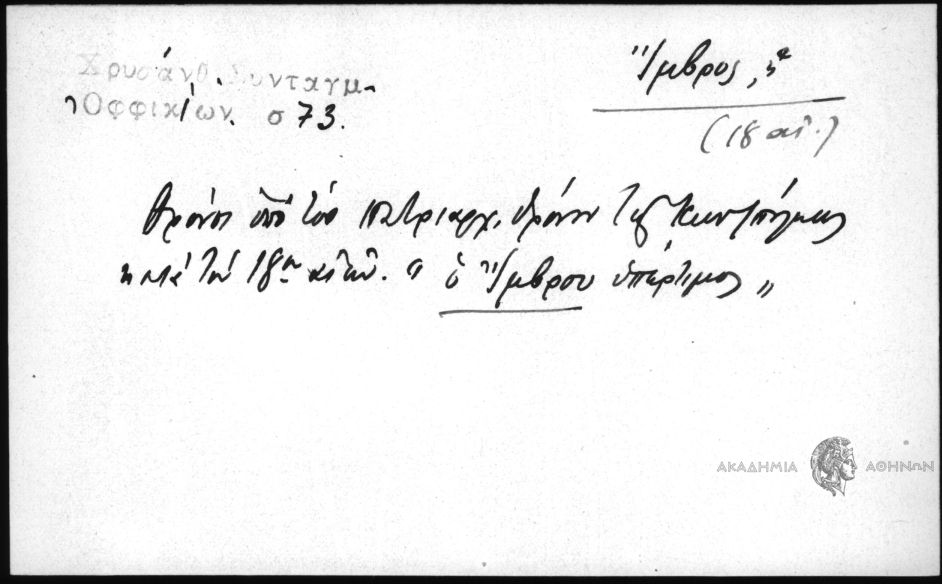 Χρυσάνθ. Συνταγμ.
Ὀφφικίων. σ 73.
Ἴμβρος, ἡ
(18 αἰ.)
θρόνος ὑπὸ τὸν πατριαρχ. θρόνον τῆς Κωνσ/πόλεως
κατὰ τὸν 18ον αἰῶν. " ὁ Ἴμβρου ὑπέρτιμος "
ΑΚΑΔΗΜΙΑ ΑΘΗΝΩΝ